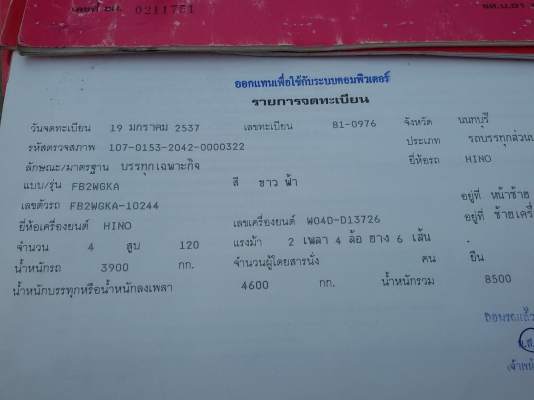 เลขที่ อน. 0211751
รส.บ.01
ออกแทนเพื่อใช้กับระบบคอมพิวเตอร์
รายการจดทะเบียน
วันจดทะเบียน 19 มกราคม 2537 เลขทะเบียน 81-0976 จังหวัด นนทบุรี
รหัสตรวจสภาพ 107-0153-2042-0000322 ประเภท รถบรรทุกส่วนบ
ลักษณะ/มาตรฐาน บรรทุกเฉพาะกิจ ยี่ห้อรถ HINO
แบบ/รุ่น FB2WGKA สี ขาว ฟ้า
เลขตัวรถ FB2WGKA-10244 อยู่ที่ หน้าซ้าย
ยี่ห้อเครื่องยนต์ HINO เลขเครื่องยนต์ WO4D-D13726 อยู่ที่ ซ้ายเครื่
จำนวน 4 สูบ 120 แรงม้า 2 เพลา 4 ล้อ ยาง 6 เส้น
น้ำหนักรถ 3900 กก. จำนวนผู้โดยสารนั่ง คน ยืน
น้ำหนักบรรทุกหรือน้ำหนักลงเพลา 4600 กก. น้ำหนักรวม 8500